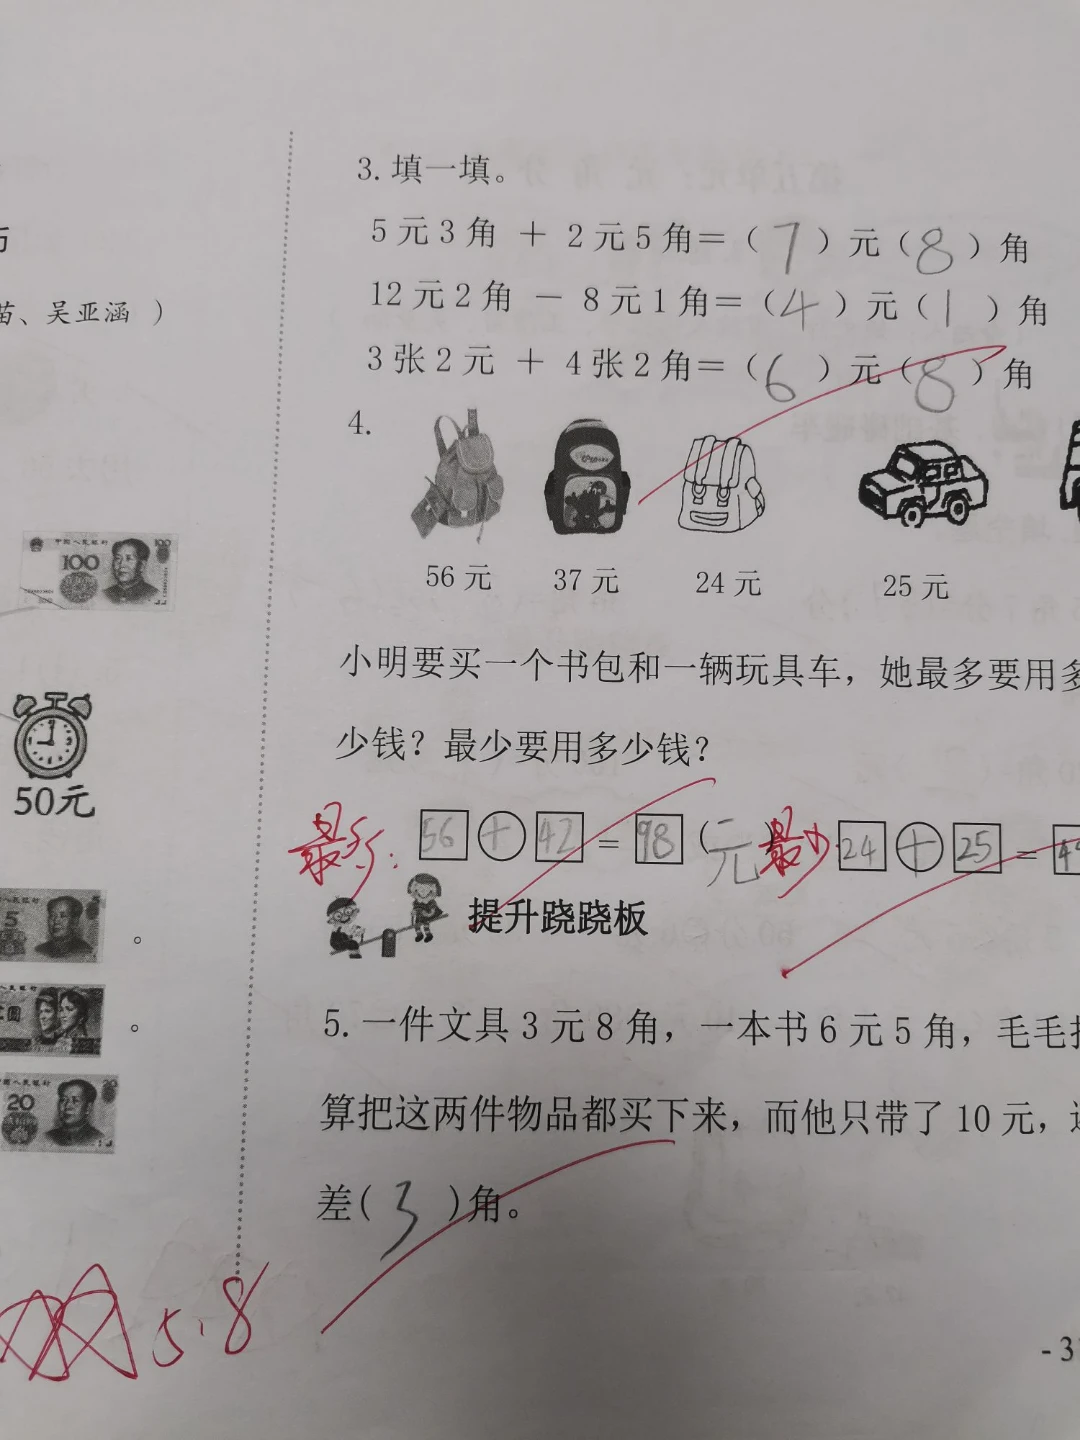 3. 填一填。
5元3角 + 2元5角=（7）元（8）角
12元2角 － 8元1角=（4）元（1）角
苗、吴亚涵 ）
3张2元 + 4张2角=（6）元（8）角
4.
中国人民银行 100
56元 37元 24元 25元
小明要买一个书包和一辆玩具车，她最多要用多
少钱？最少要用多少钱？
50元
最多: 56 + 42 = 98 (元) 最少 24 + 25 =
提升跷跷板
5
5. 一件文具3元8角，一本书6元5角，毛毛
算把这两件物品都买下来，而他只带了10元，
20
差( 3 )角。
5.8
- 3